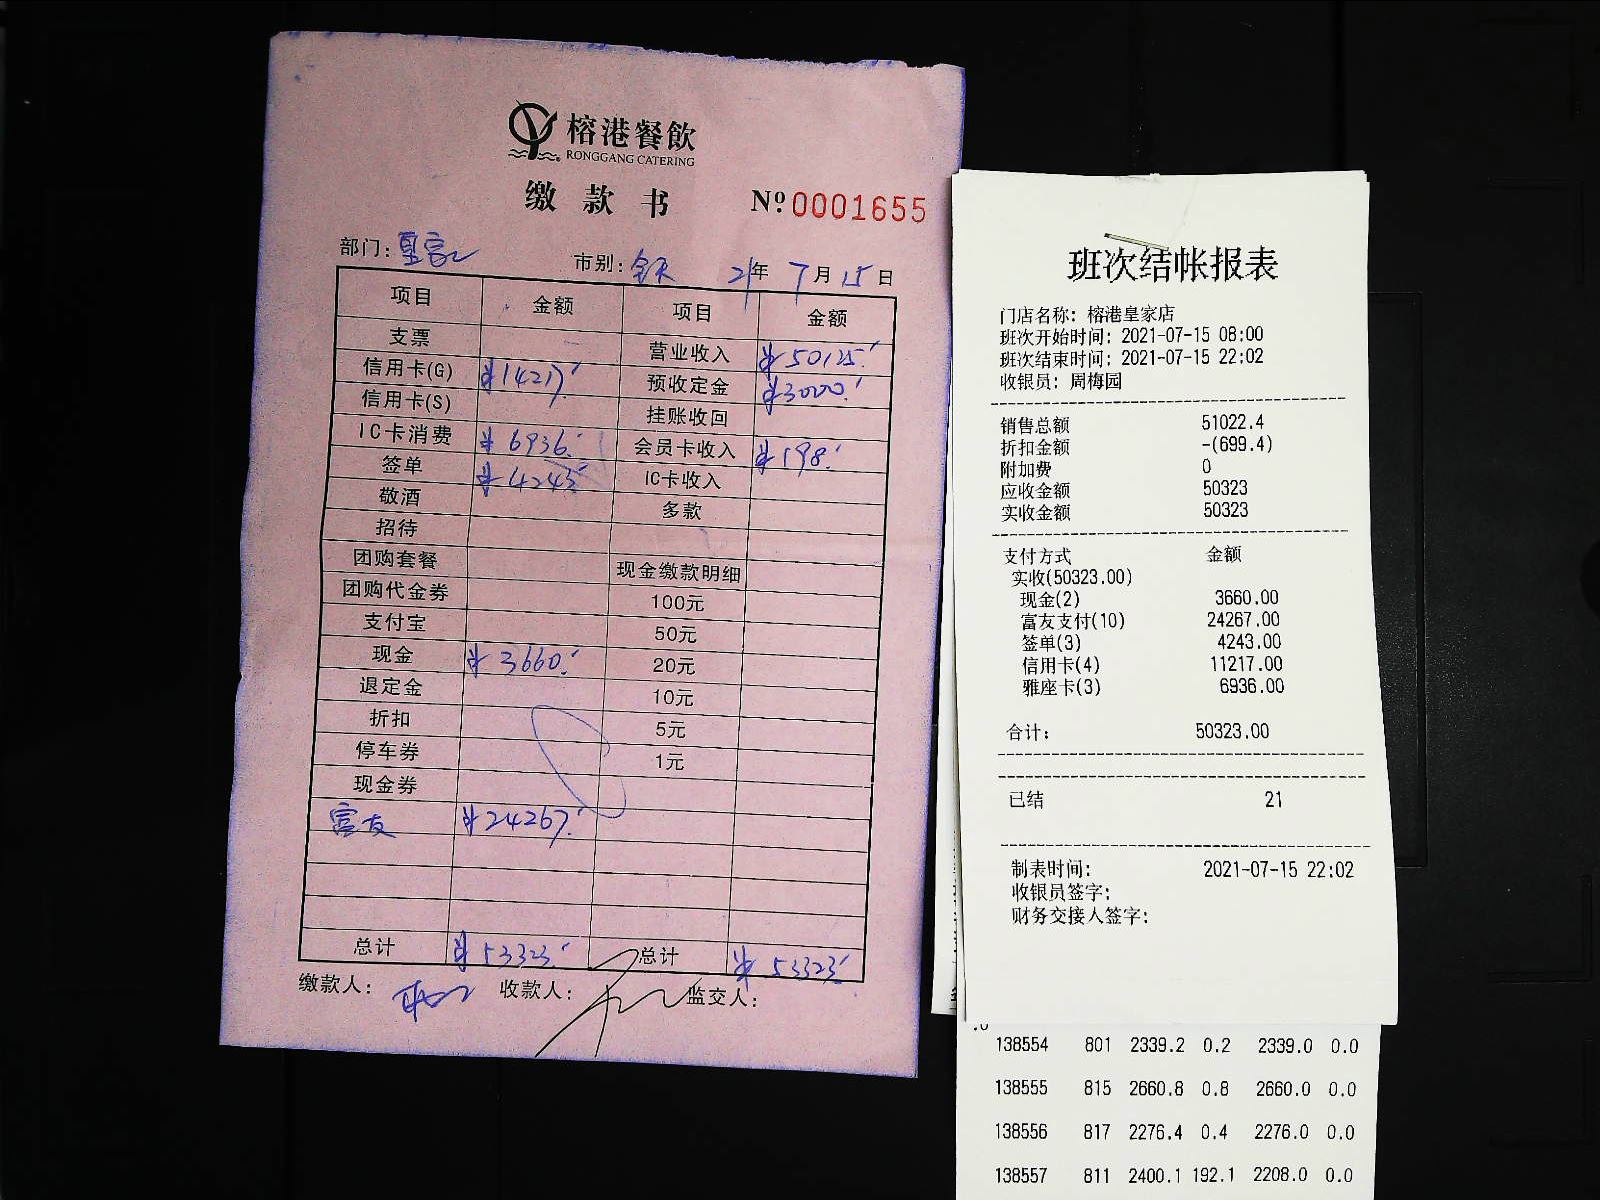 榕港餐飲
RONGGANG CATERING
缴款书 Nº 0001655
部门: 皇家 市别: 全天 21年 7月 15日
项目 金额 项目 金额
支票 营业收入 ¥50125.
信用卡(G) ¥14217. 预收定金 ¥3000.
信用卡(S) 挂账收回
IC卡消费 ¥6936. 会员卡收入 ¥198.
签单 ¥4243. IC卡收入
敬酒 多款
招待
团购套餐 现金缴款明细
团购代金券 100元
支付宝 50元
现金 ¥3660. 20元
退定金 10元
折扣 5元
停车券 1元
现金券
富友 ¥24267.
总计 ¥53323. 总计 ¥53323.
缴款人: 收款人: 监交人:
班次结帐报表
门店名称: 榕港皇家店
班次开始时间: 2021-07-15 08:00
班次结束时间: 2021-07-15 22:02
收银员: 周梅园
销售总额 51022.4
折扣金额 -(699.4)
附加费 0
应收金额 50323
实收金额 50323
支付方式 金额
实收(50323.00)
现金(2) 3660.00
富友支付(10) 24267.00
签单(3) 4243.00
信用卡(4) 11217.00
雅座卡(3) 6936.00
合计: 50323.00
已结 21
制表时间: 2021-07-15 22:02
收银员签字:
财务交接人签字:
138554 801 2339.2 0.2 2339.0 0.0
138555 815 2660.8 0.8 2660.0 0.0
138556 817 2276.4 0.4 2276.0 0.0
138557 811 2400.1 192.1 2208.0 0.0